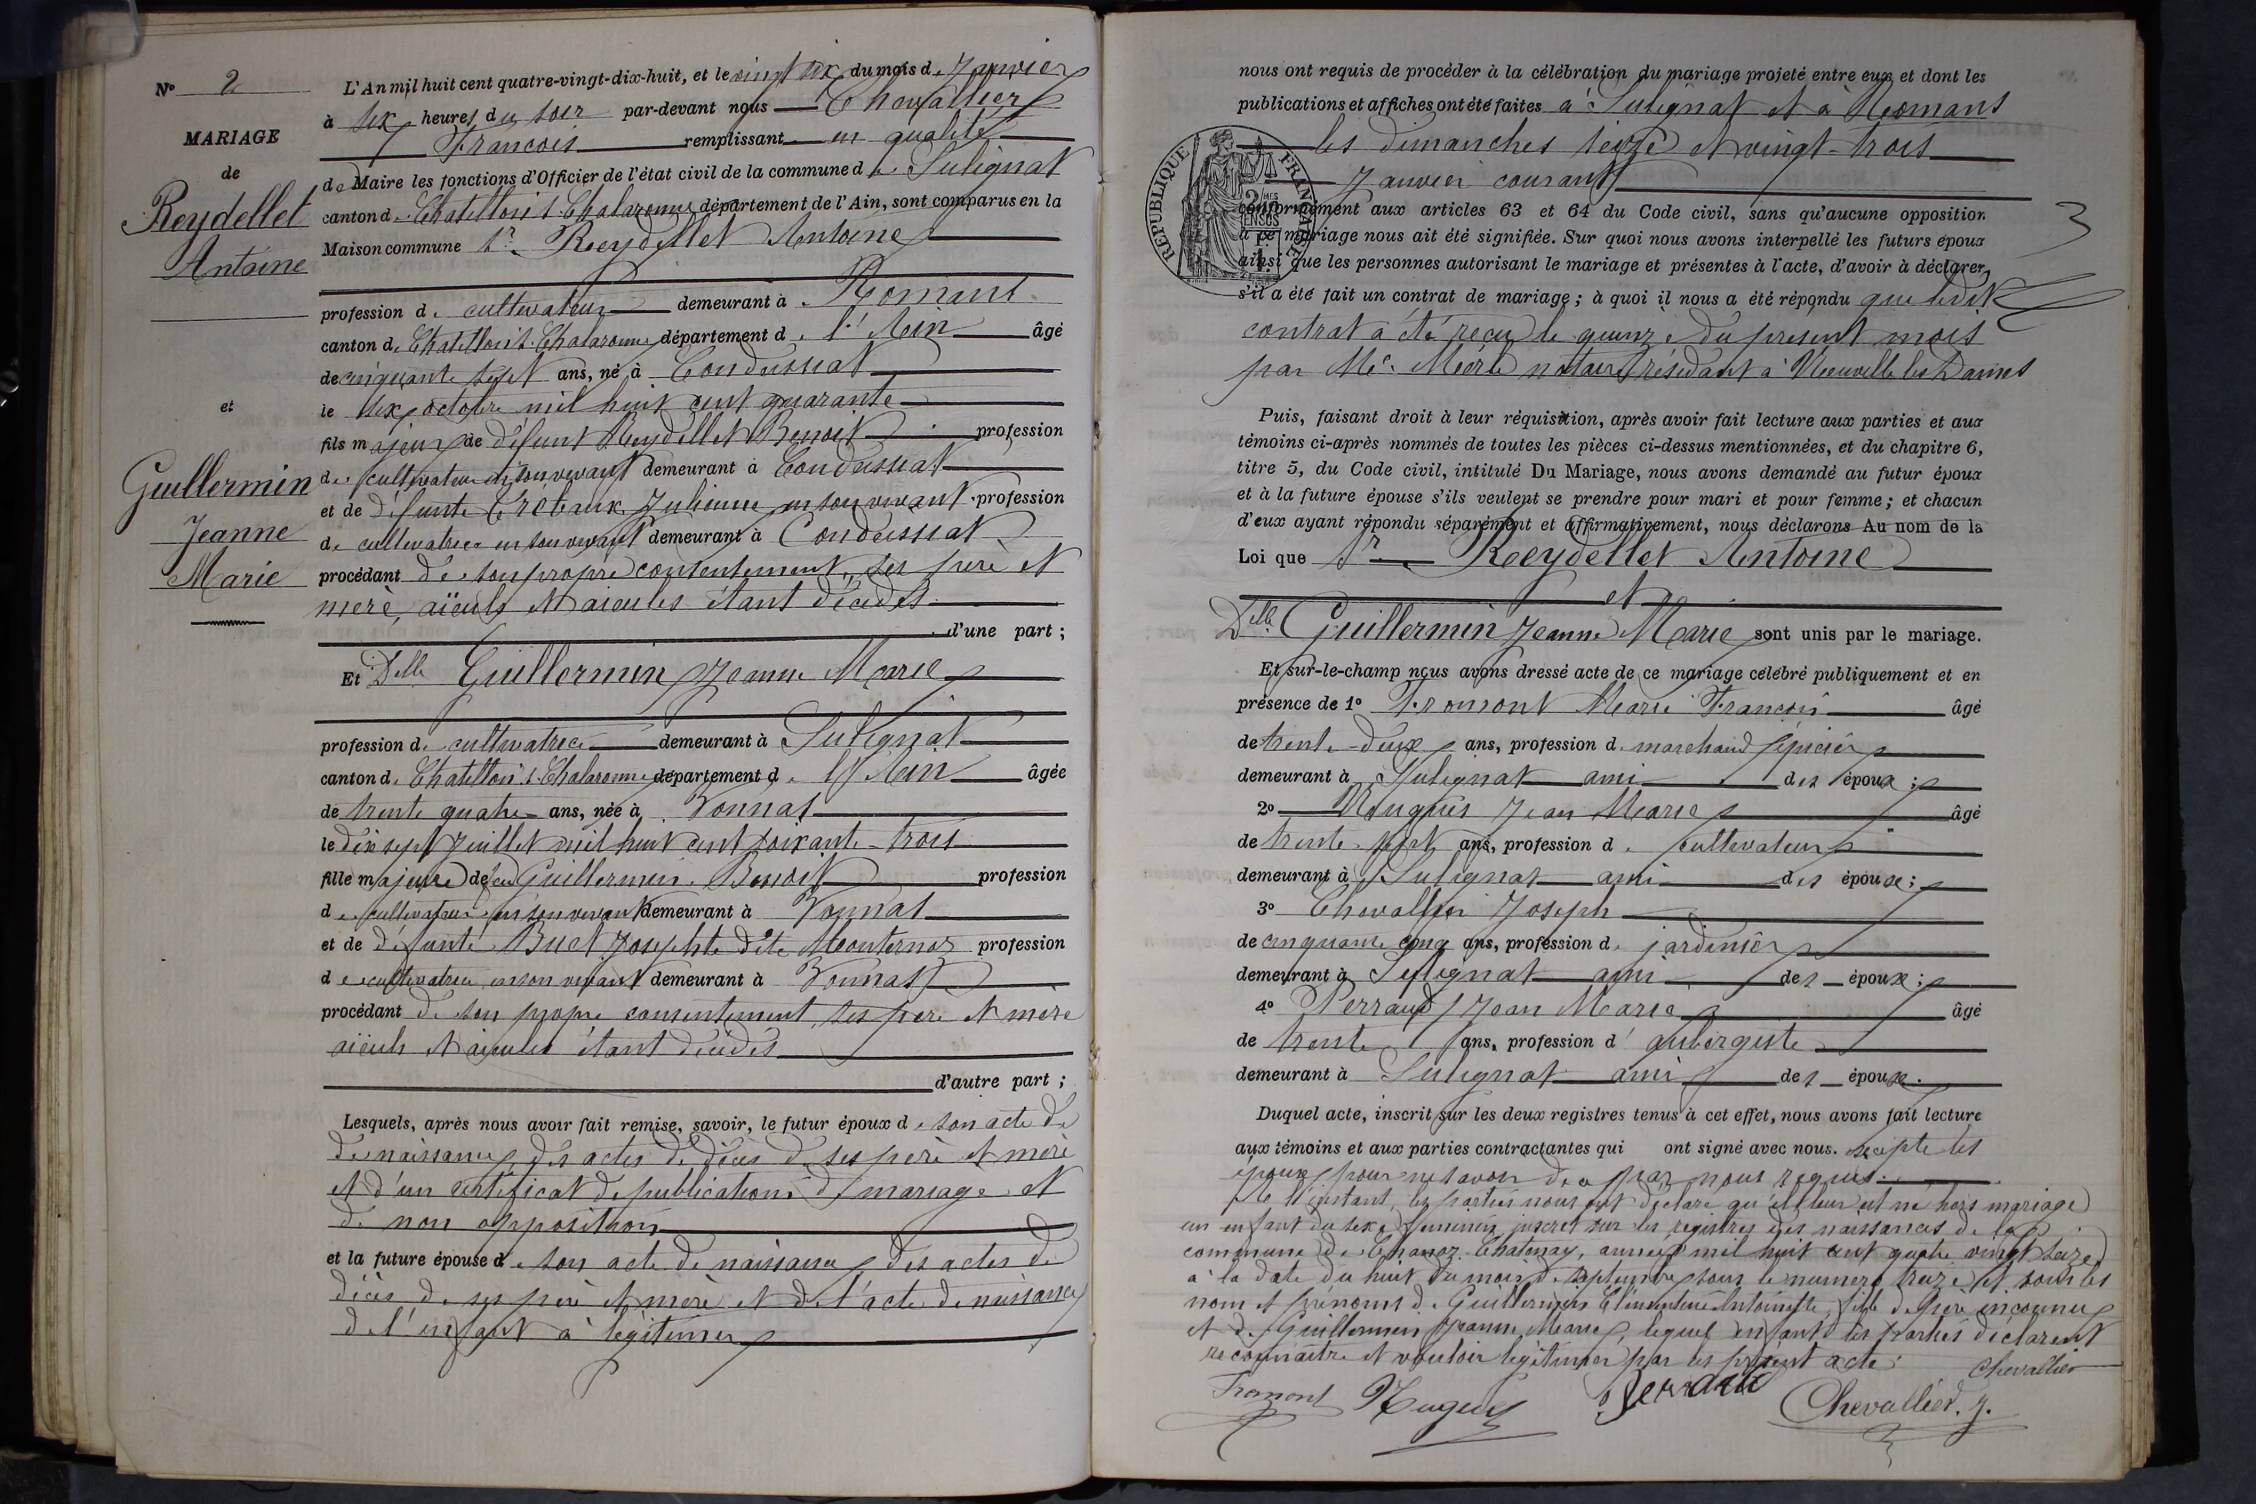 N° 2
MARIAGE
de
Reydellet
Antoine
et
Guillermin
Jeanne
Marie
L'An mil huit cent quatre-vingt-dix-huit, et le vingt six du mois de Janvier
à six heures du soir par-devant nous Chevallier
François remplissant en qualité
de Maire les fonctions d'Officier de l'état civil de la commune de Sulignat
canton de Chatillon s. Chalaronne département de l'Ain, sont comparus en la
Maison commune Sr. Reydellet Antoine
profession de cultivateur demeurant à Romans
canton de Chatillon s. Chalaronne département de l'Ain âgé
de cinquante sept ans, né à Condeissiat
le six octobre mil huit cent quarante
fils majeur de défunt Reydellet Benoit profession
de cultivateur en son vivant demeurant à Condeissiat
et de défunte Julienne en son vivant profession
de cultivatrice en son vivant demeurant à Condeissiat
procédant de son propre consentement, ses père et
mère, aïeuls et aïeules étant décédés
d'une part ;
Et Delle Guillermin Jeanne Marie
profession de cultivatrice demeurant à Sulignat
canton de Chatillon s. Chalaronne département de l'Ain âgée
de trente quatre ans, née à Vonnas
le dix sept Juillet mil huit cent soixante-trois
fille majeure de feu Guillermin Benoit profession
de cultivateur en son vivant demeurant à Vonnas
et de défunte Buet Josephte dite Monternoz profession
de cultivatrice en son vivant demeurant à Vonnas
procédant de son propre consentement, ses père et mère
aïeuls et aïeules étant décédés
d'autre part ;
Lesquels, après nous avoir fait remise, savoir, le futur époux de son acte de
de naissance, des actes de décès de ses père et mère
et d'un certificat de publications de mariage et
de non opposition
et la future épouse de son acte de naissance, des actes de
décès de ses père et mère et de l'acte de naissance
de l'enfant à légitimer
nous ont requis de procéder à la célébration du mariage projeté entre eux, et dont les
publications et affiches ont été faites à Sulignat et à Romans
les dimanches seize et vingt-trois
Janvier courant
RÉPUBLIQUE FRANÇAISE
2/MES
EN SUS
conformément aux articles 63 et 64 du Code civil, sans qu'aucune opposition
à ce mariage nous ait été signifiée. Sur quoi nous avons interpellé les futurs époux
ainsi que les personnes autorisant le mariage et présentes à l'acte, d'avoir à déclarer
s'il a été fait un contrat de mariage ; à quoi il nous a été répondu que ledit
3
contrat a été reçu le quinze du present mois
par Me. Merle notaire résidant à Neuville les Dames
Puis, faisant droit à leur réquisition, après avoir fait lecture aux parties et aux
témoins ci-après nommés de toutes les pièces ci-dessus mentionnées, et du chapitre 6,
titre 5, du Code civil, intitulé Du Mariage, nous avons demandé au futur époux
et à la future épouse s'ils veulent se prendre pour mari et pour femme ; et chacun
d'eux ayant répondu séparément et affirmativement, nous déclarons Au nom de la
Loi que Sr Reydellet Antoine
et
Delle Guillermin Jeanne Marie sont unis par le mariage.
Et sur-le-champ nous avons dressé acte de ce mariage célébré publiquement et en
présence de 1° Fromont Marie François âgé
de trente-deux ans, profession de marchand épicier
demeurant à Sulignat ami des époux ;
2° Jean Marie âgé
de trente sept ans, profession de cultivateur
demeurant à Sulignat ami des époux ;
3° Chevallier Joseph
de cinquante cinq ans, profession de jardinier
demeurant à Sulignat ami des époux ;
4° Perraud Jean Marie âgé
de trente ans, profession d'aubergiste
demeurant à Sulignat ami des époux.
Duquel acte, inscrit sur les deux registres tenus à cet effet, nous avons fait lecture
aux témoins et aux parties contractantes qui ont signé avec nous. excepté les
époux pour ne savoir de ce par nous requis.
A l'instant, les parties nous ont déclaré qu'il leur est né hors mariage
un enfant du sexe féminin, inscrit sur les registres des naissances de la
commune de Chanoz-Chatenay, année mil huit cent quatre vingt seize
à la date du huit du mois de septembre sous le numéro treize et sous les
nom et prénoms de Guillermin Clémentine Antoinette, fille de père inconnu
et de Guillermin Jeanne Marie, lequel enfant les parties déclarent
reconnaître et vouloir légitimer par le présent acte.
Chevallier
Fromont Perraud
Chevallier. J.